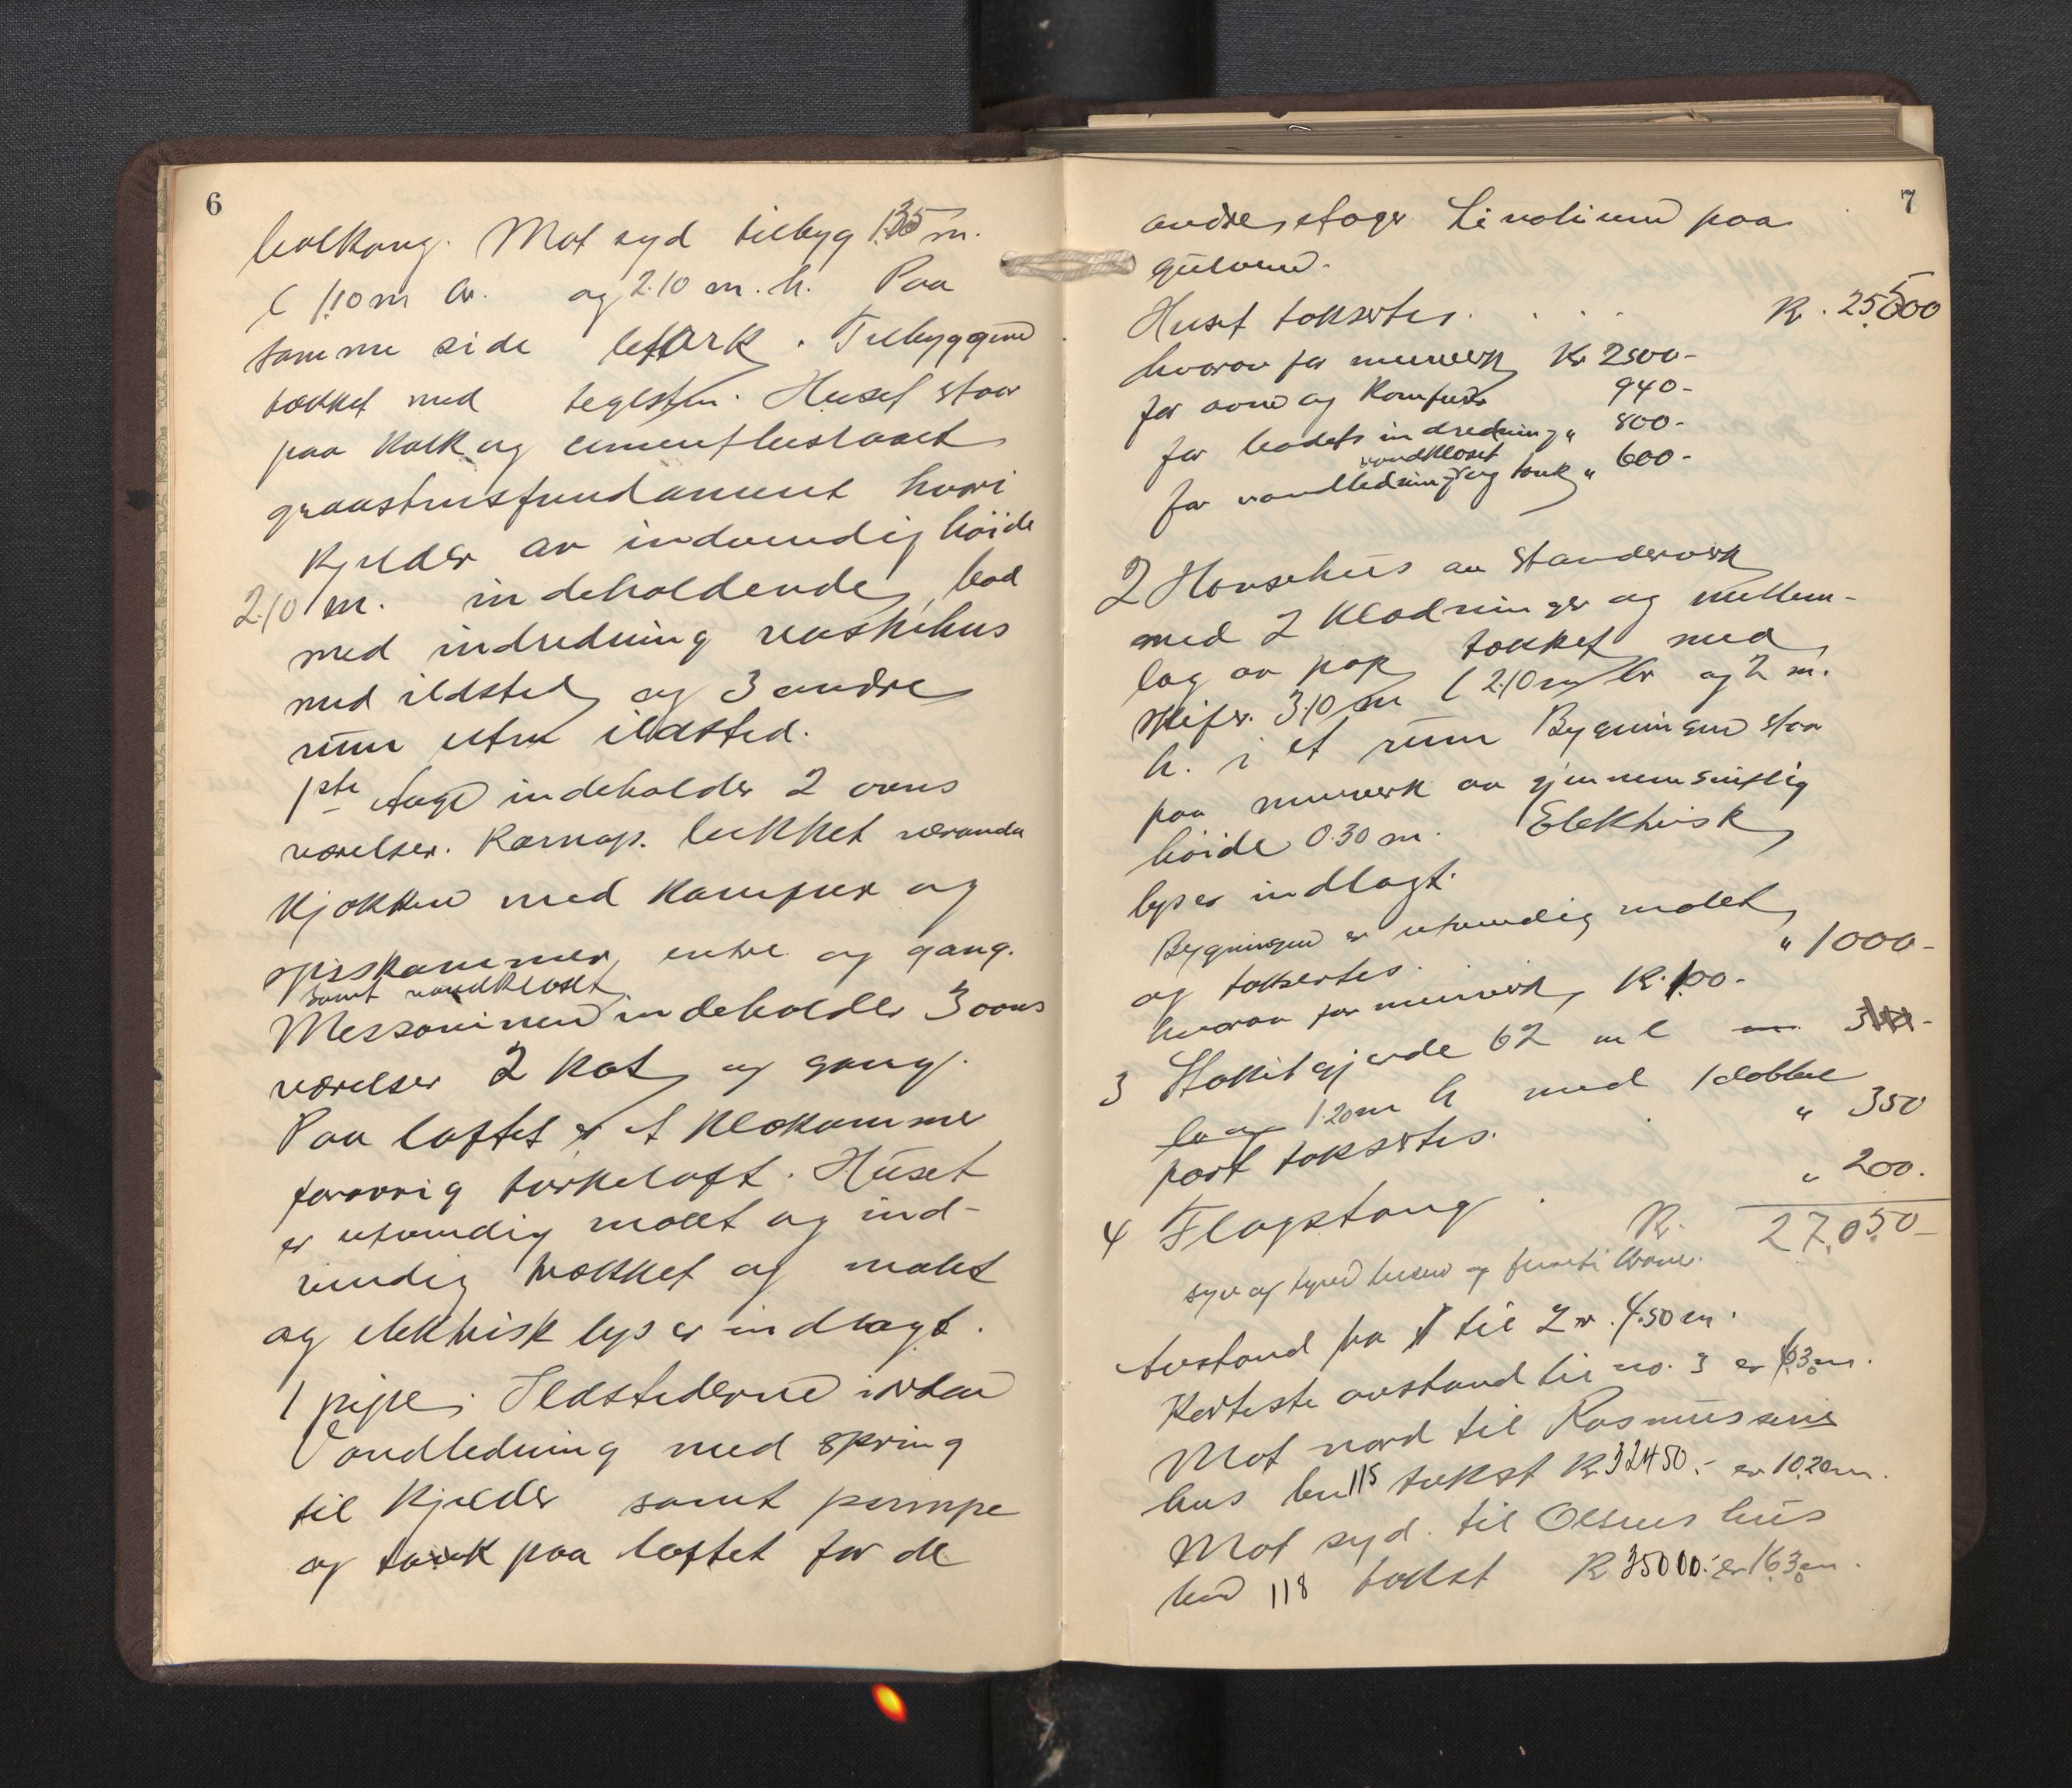 6
balkong. Mot syd tilbyg 1.35 m.
l 1.10 m br. og 2.10 m. h. Paa
samme side let ark. Tilbyggene
tækket med teglsten. Huset staar
paa kalk og cementpudset
graastensfundament hvori
kjelder av indvendig høide
2.10 m. indeholdende bad
med indredning vaskehus
med ildsted og 3 andre
rum uten ildsted.
1ste etage indeholder 2 ovns
værelser. karnap. lukket veranda
kjøkken med komfur og
spiskammer, entre og gang.
samt vandklosett
Messaninen indeholder 3 ovns
værelser 2 kot og gang.
Paa loftet er et klækammer
forøvrig tørkeloft. Huset
er utvendig malet og ind-
vendig trækket og malet
og elektrisk lys er indlagt.
1 pipe. Ildstederne i orden
Vandledning med spring
til kjelder samt pumpe
og tank paa loftet for de
7
andre etager Linolium paa
gulvene.
Huset takseres . . . . Kr. 25,500
hvorav for murverk Kr 2500-
for ovne og komfur 940-
for badets indredning " 800-
vandkloset
for vandledning og tank " 600-
2 Hønsehus av standerverk
med 2 klædninger og mellem-
lag av pap tækket med
skifer. 3.10 m l 2.10 m br og 2 m.
h. i et rum Bygningen staar
paa murverk av gjennemsnitlig
høide 0.30 m. Elektrisk
lys er indlagt.
Bygningen er utvendig malet
og takseres. " 1000-
hvorav for murverk Kr. 100-
3 Stakitgjærde 62 m l
1.20 m h med 1 dobbel
port takseres. " 350
4 Flagstang . " 200.
Kr. 27,050-
syv og tyve tusen og femti kroner.
Avstand fra 1 til 2 er 4.50 m.
Korteste avstand til no. 3 er 6.30 m.
Mot nord til Rasmussens
hus bn 115 takst Kr 32450.- er 10.20 m.
Mot syd til Olsens hus
bn 118 takst Kr 35000.- er 16.30 m.